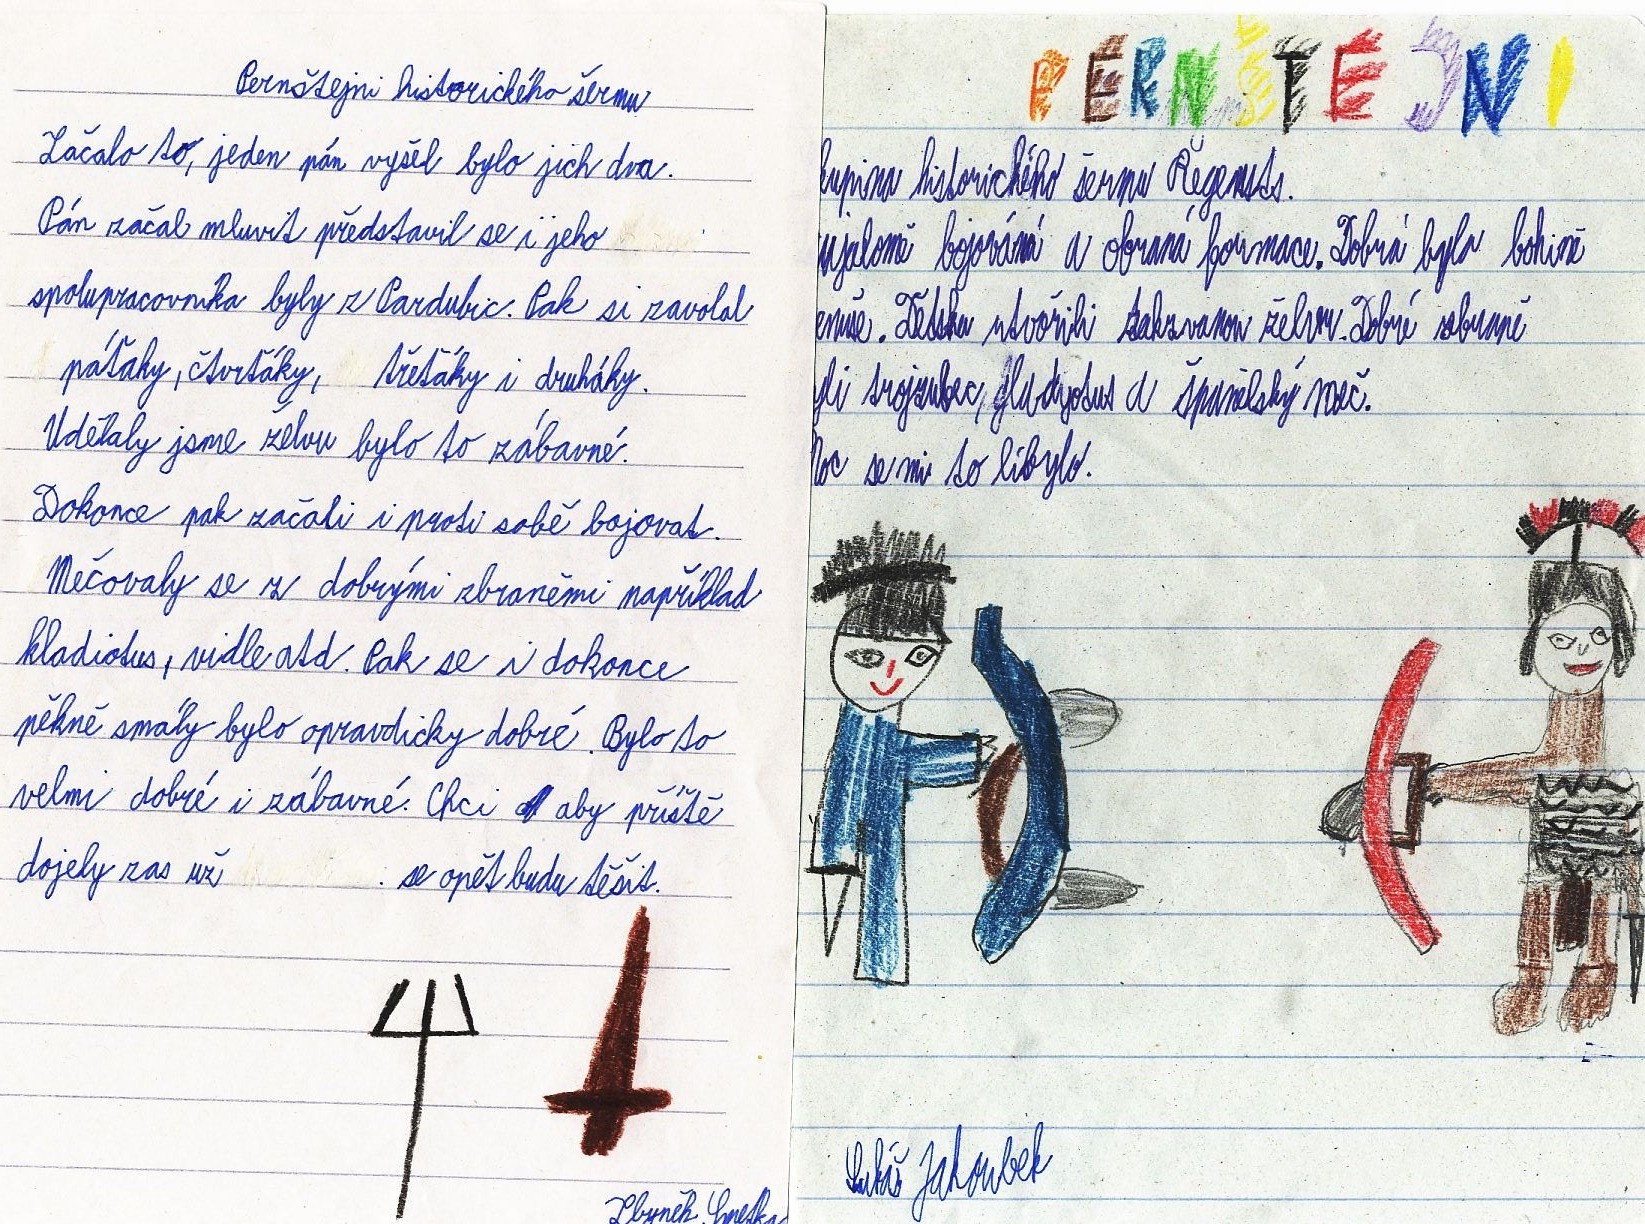 Pernštejni historického šermu
Začalo to, jeden pán vyšel bylo jich dva.
Pán začal mluvit představil se i jeho
spolupracovníka byly z Pardubic. Pak si zavolal
páťáky, čtvrťáky, třeťáky i druháky.
Udělaly jsme želvu bylo to zábavné.
Dokonce pak začali i proti sobě bojovat.
Mečovaly se z dobrými zbraněmi například
kladiotus, vidle atd. Pak se i dokonce
pěkně smály bylo opravdicky dobré. Bylo to
velmi dobré i zábavné. Chci aby příště
dojely zas už se opět budu těšit.
Zbyněk
PERNŠTEJNI
kupina historického šermu Řegemts.
bojováná a obraná formace. Dobrá byla bohině
enuše. Dětska utvořili takzvanou želvu. Dobré zbraně
yli trojzubec, gladyotus a španělský meč.
Moc se mi to líbylo.
Lukáš Jakoubek